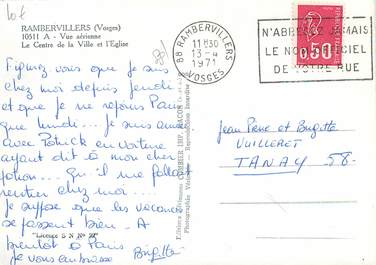 RAMBERVILLERS (Vosges)
10511 A - Vue aérienne
Le Centre de la Ville et l'Eglise
Figurez-vous que je suis
chez moi depuis jeudi
et que je ne rejoins Paris
que lundi... Je suis
avec Patrick en voiture
ayant dit à mon cher
... Qu'il me fallait
rentrer chez moi...
Je suppose que les vacances
se passent bien. A
bientôt à Paris
je vous embrasse Brigitte
"Licence S N N°
Editions Aériennes COMBIER IMP. MACON
Photographie Reproduction Interdite
88 RAMBERVILLERS
11H30
13-4
1971
VOSGES
N'ABREGEZ JAMAIS
LE NOM OFFICIEL
DE VOTRE RUE
0,50
Jean Pierre et Brigitte
VUILLERET
TANAY 58-